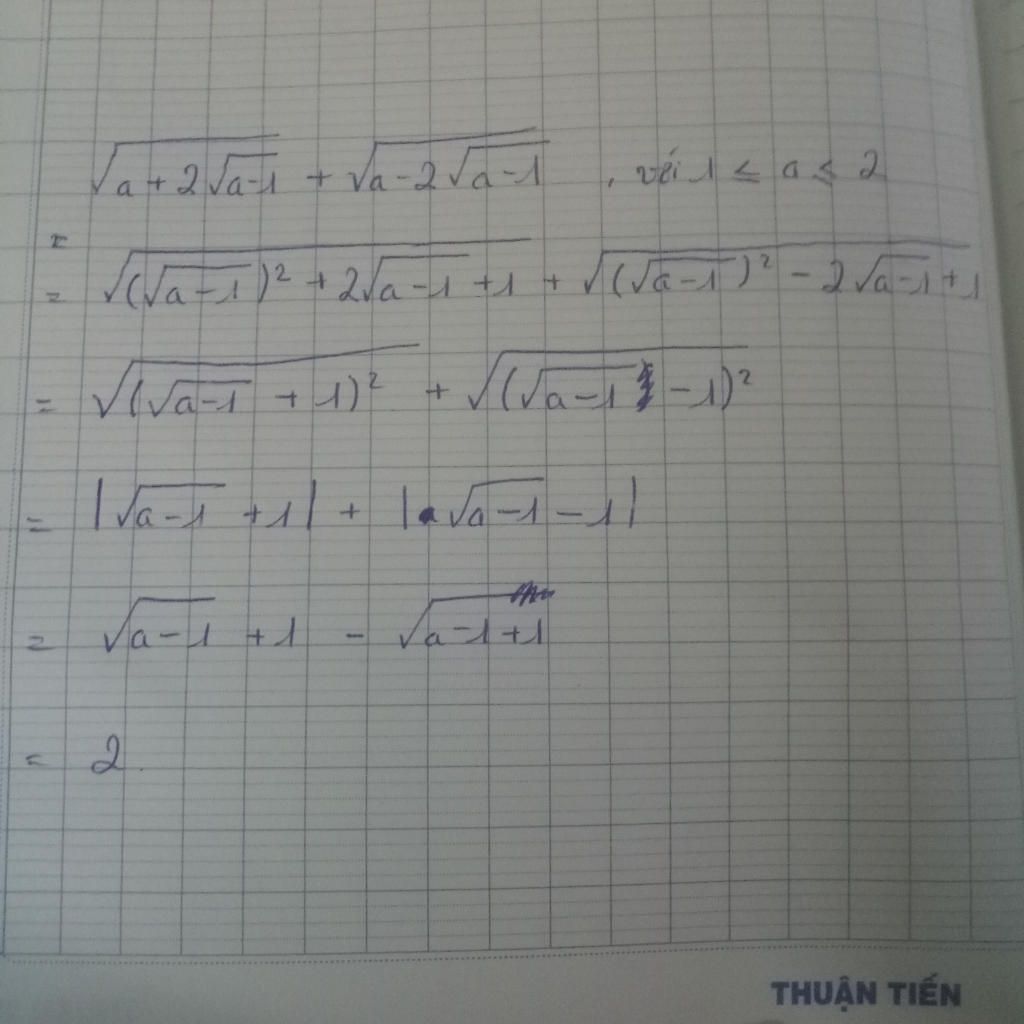 √(a + 2√(a-1)) + √(a - 2√(a-1)) , với 1 ≤ a ≤ 2
=
= √((√(a-1))² + 2√(a-1) + 1) + √((√(a-1))² - 2√(a-1) + 1)
= √((√(a-1) + 1)²) + √((√(a-1) - 1)²)
= |√(a-1) + 1| + |√(a-1) - 1|
= √(a-1) + 1 - √(a-1+1)
= 2
THUẬN TIẾN